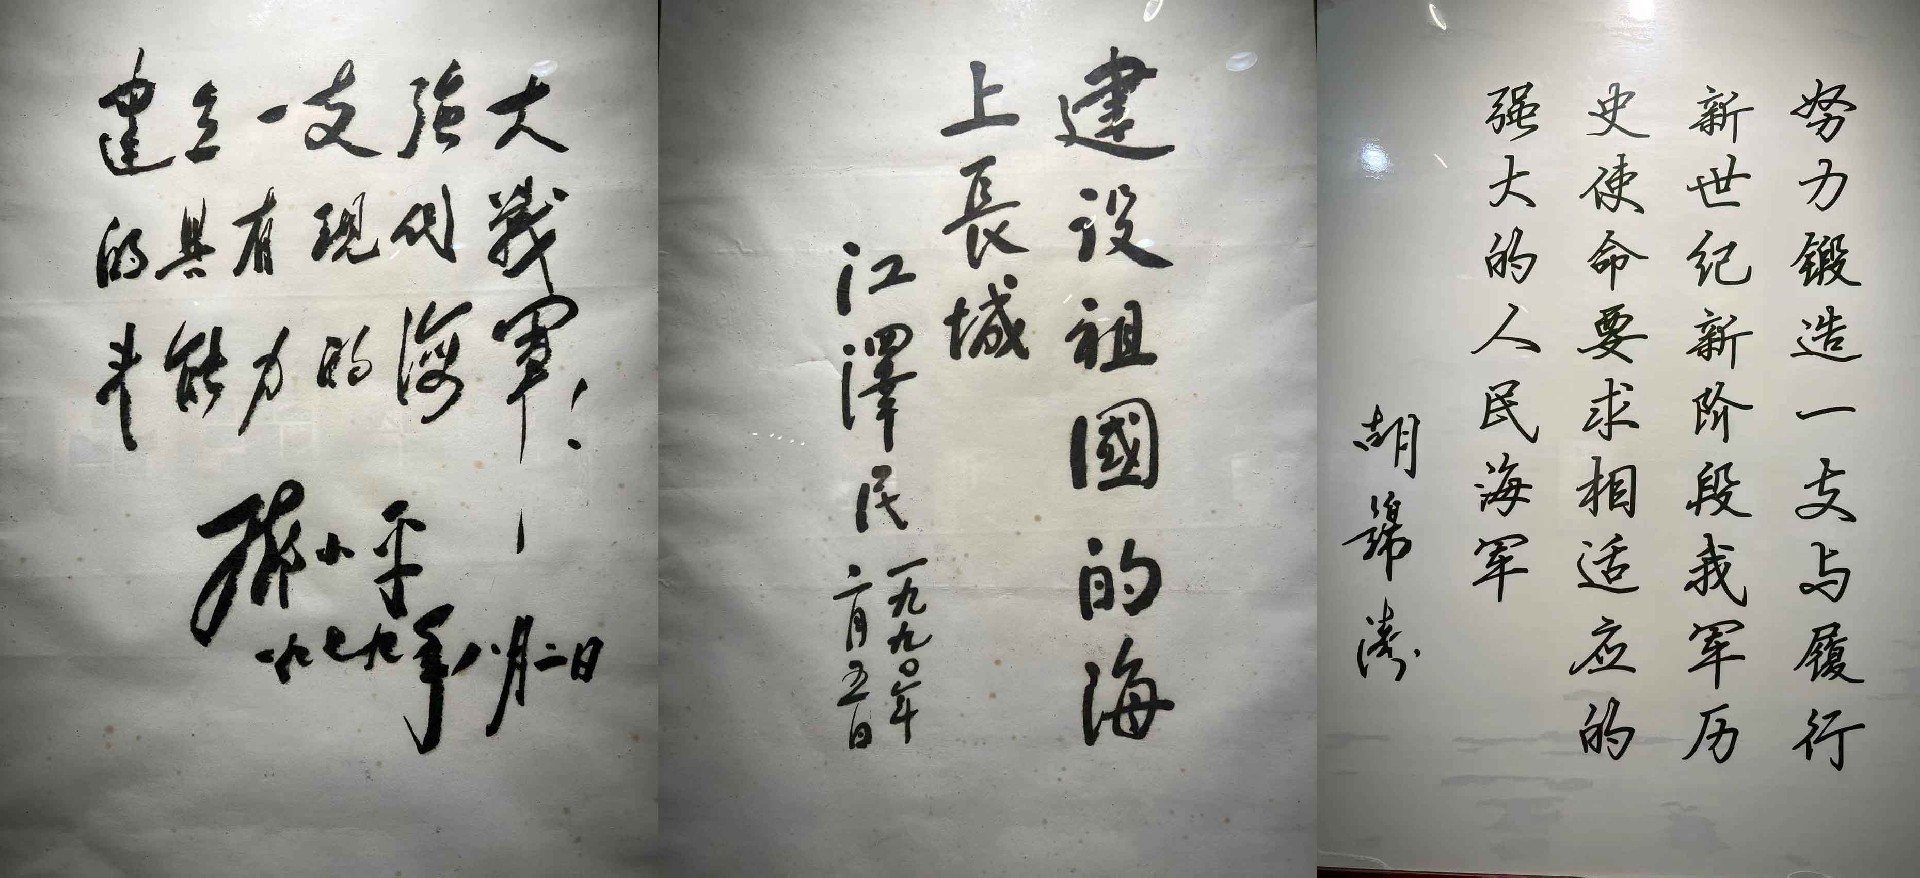 建立一支强大
的具有现代战
斗能力的海军！
邓小平
一九七九年八月二日
建设祖國的海
上長城
江澤民
一九九〇年
二月五日
努力锻造一支与履行
新世纪新阶段我军历
史使命要求相适应的
强大的人民海军
胡锦涛